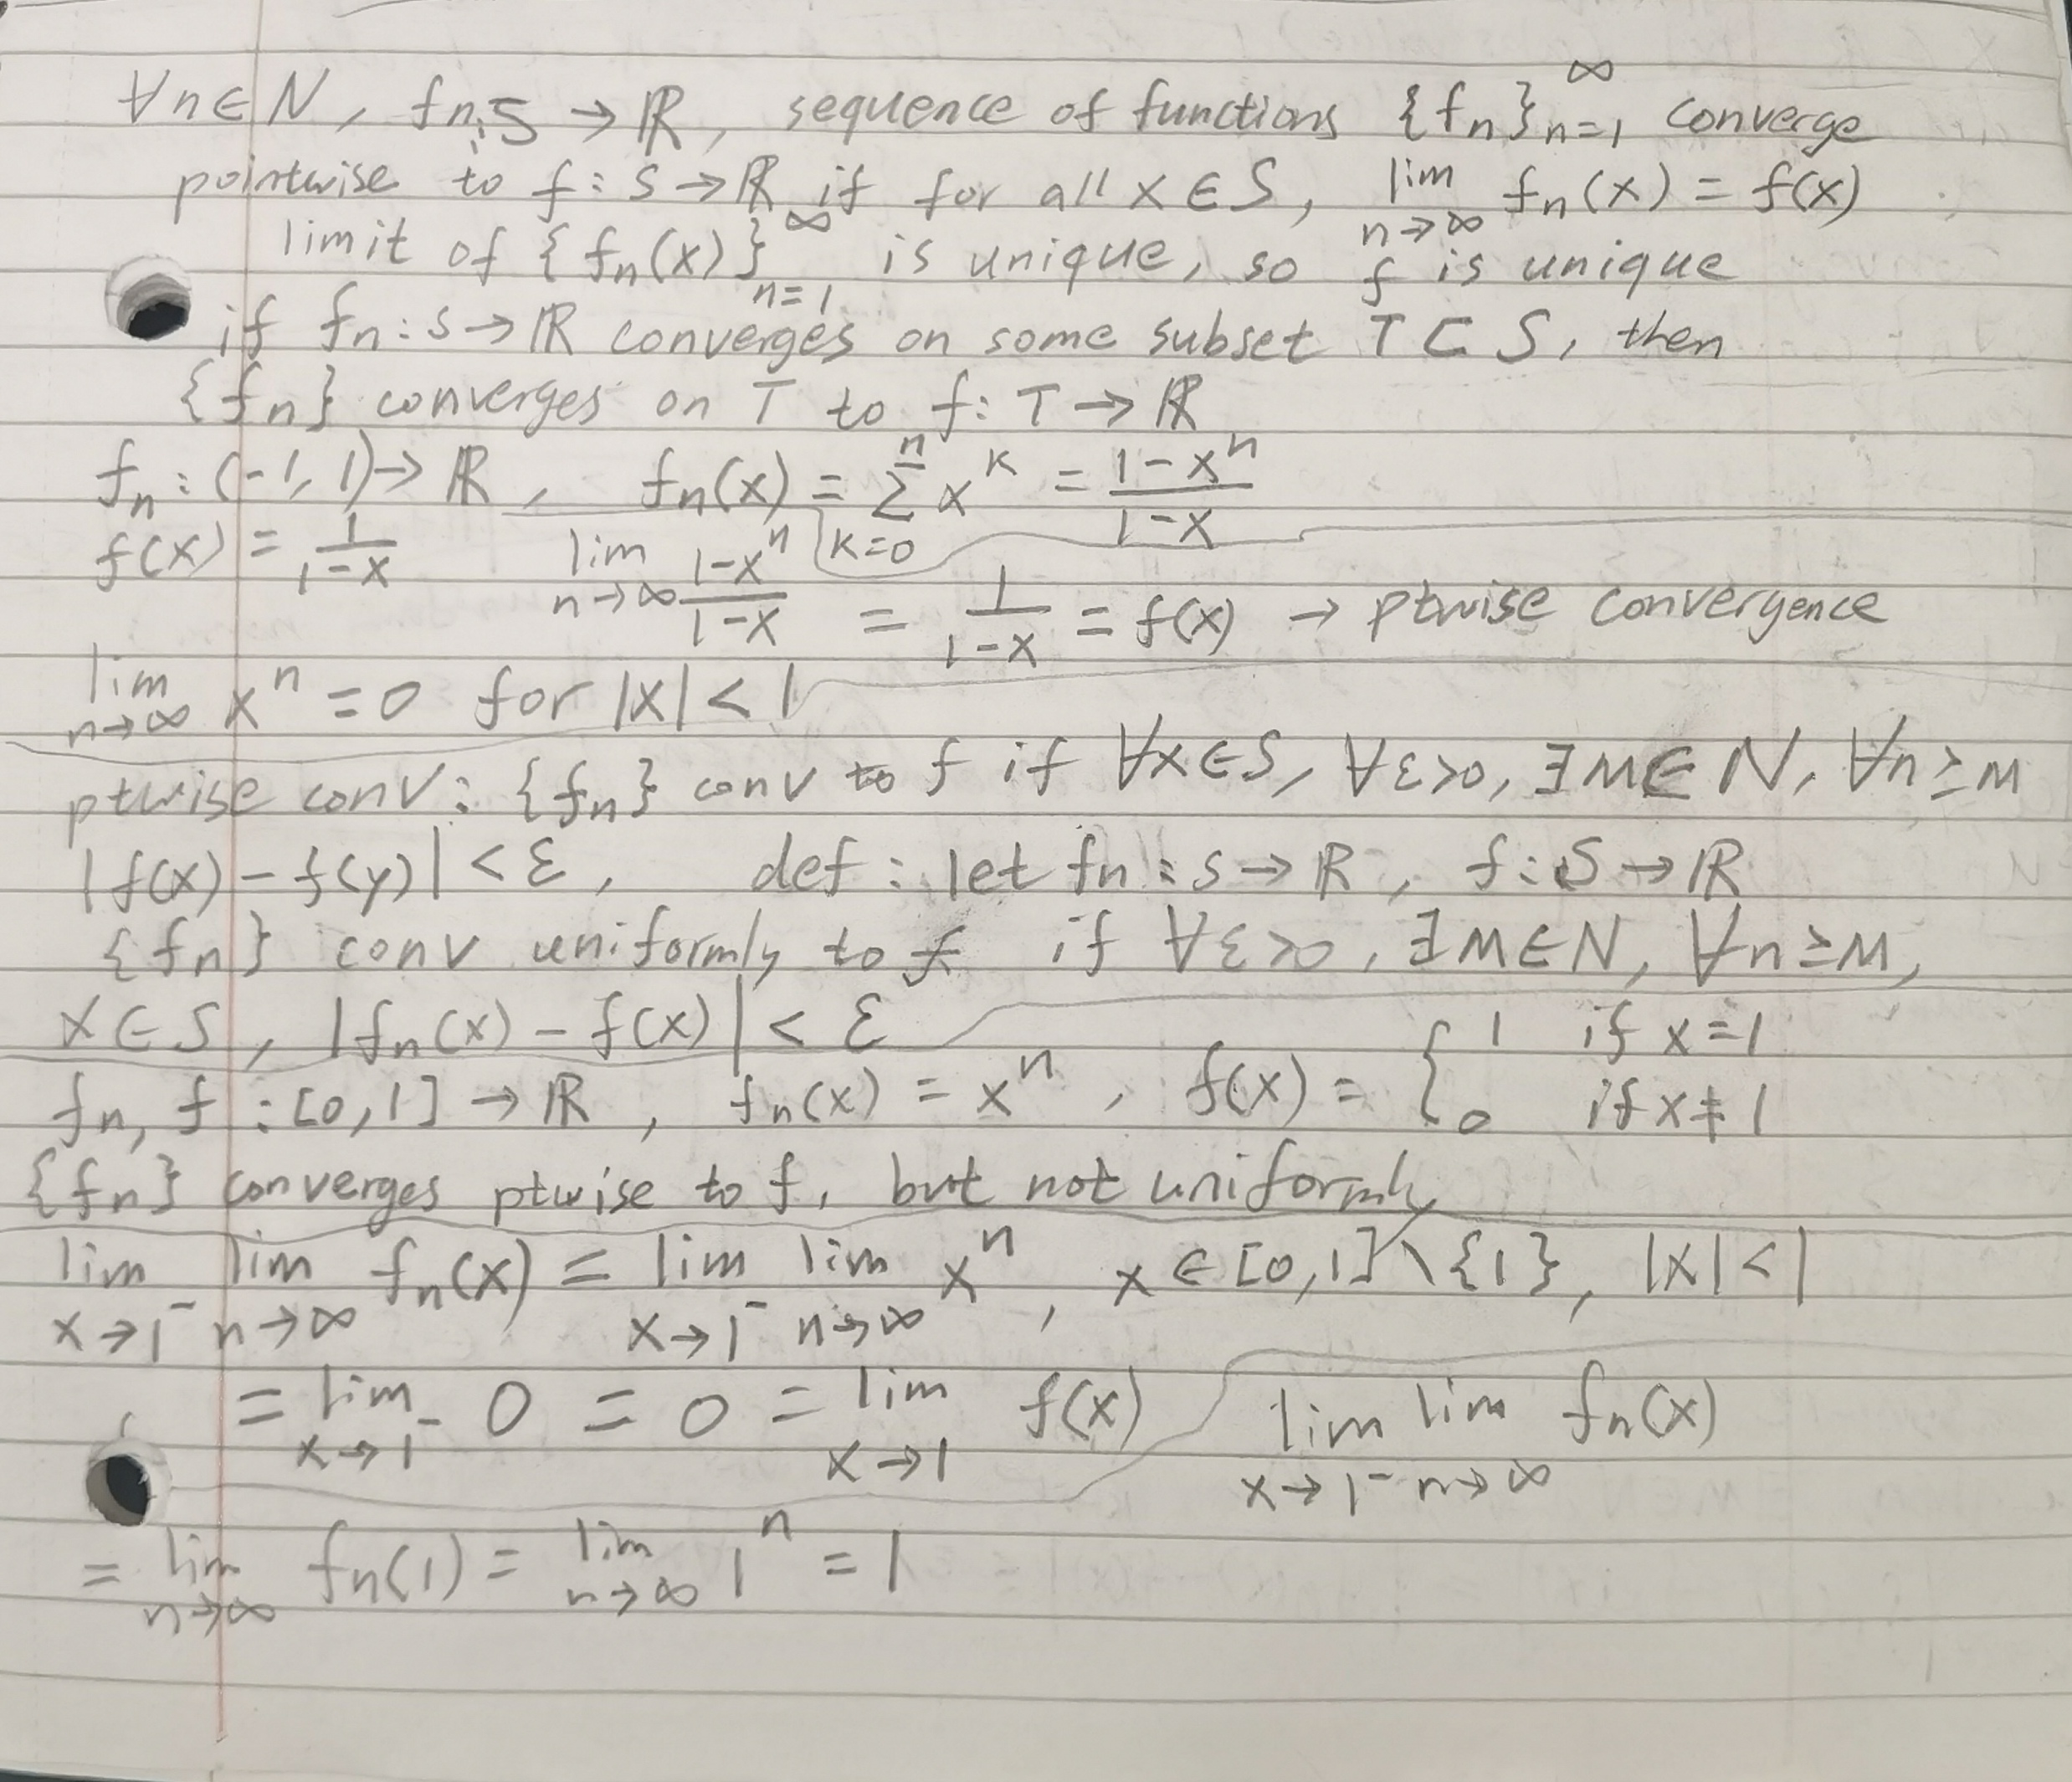 ∀n∈N, fn:S → ℝ, sequence of functions {fn}_{n=1}^∞ converge
pointwise to f : S → ℝ if for all x ∈ S, lim_{n→∞} fn(x) = f(x)
limit of {fn(x)}_{n=1}^∞ is unique, so f is unique
if fn : S → ℝ converges on some subset T ⊂ S, then
{fn} converges on T to f : T → ℝ
fn : (-1, 1) → ℝ, fn(x) = Σ_{k=0}^{n} x^k = (1-x^n)/(1-x)
f(x) = 1/(1-x) lim_{n→∞} (1-x^n)/(1-x) = 1/(1-x) = f(x) → ptwise convergence
lim_{n→∞} x^n = 0 for |x| < 1
ptwise conv : {fn} conv to f if ∀x∈S, ∀ε>0, ∃M∈N, ∀n≥M
|f(x) - f(y)| < ε, def : let fn : S → ℝ, f : S → ℝ
{fn} conv uniformly to f if ∀ε>0, ∃M∈N, ∀n≥M,
x∈S, |fn(x) - f(x)| < ε
fn, f : [0,1] → ℝ, fn(x) = x^n, f(x) = { 1 if x=1
0 if x≠1
{fn} converges ptwise to f, but not uniformly
lim_{x→1^-} lim_{n→∞} fn(x) = lim_{x→1^-} lim_{n→∞} x^n, x∈[0,1]\{1}, |x|<1
= lim_{x→1^-} 0 = 0 = lim_{x→1} f(x) lim_{x→1^-} lim_{n→∞} fn(x)
= lim_{n→∞} fn(1) = lim_{n→∞} 1^n = 1